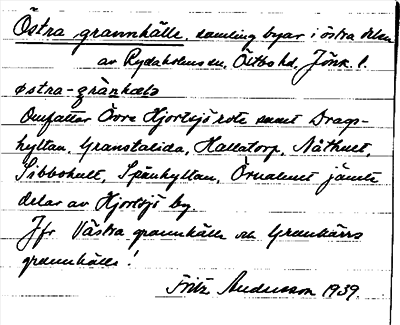 Östra grannhälle, samling byar i östra delen
av Rydaholms sn, Östbo hd, Jönk. l.
östra-gränhæls
Omfattar Övre Hjortsjö rote samt Drags-
hyltan, Granstalida, Hallatorp, Näthult,
Sibbohult, Spånhyltan, Örnalund jämte
delar av Hjortsjö by.
Jfr Västra grannhälle och Granhärrs
grannhälle!
Fritz Andersson 1939.